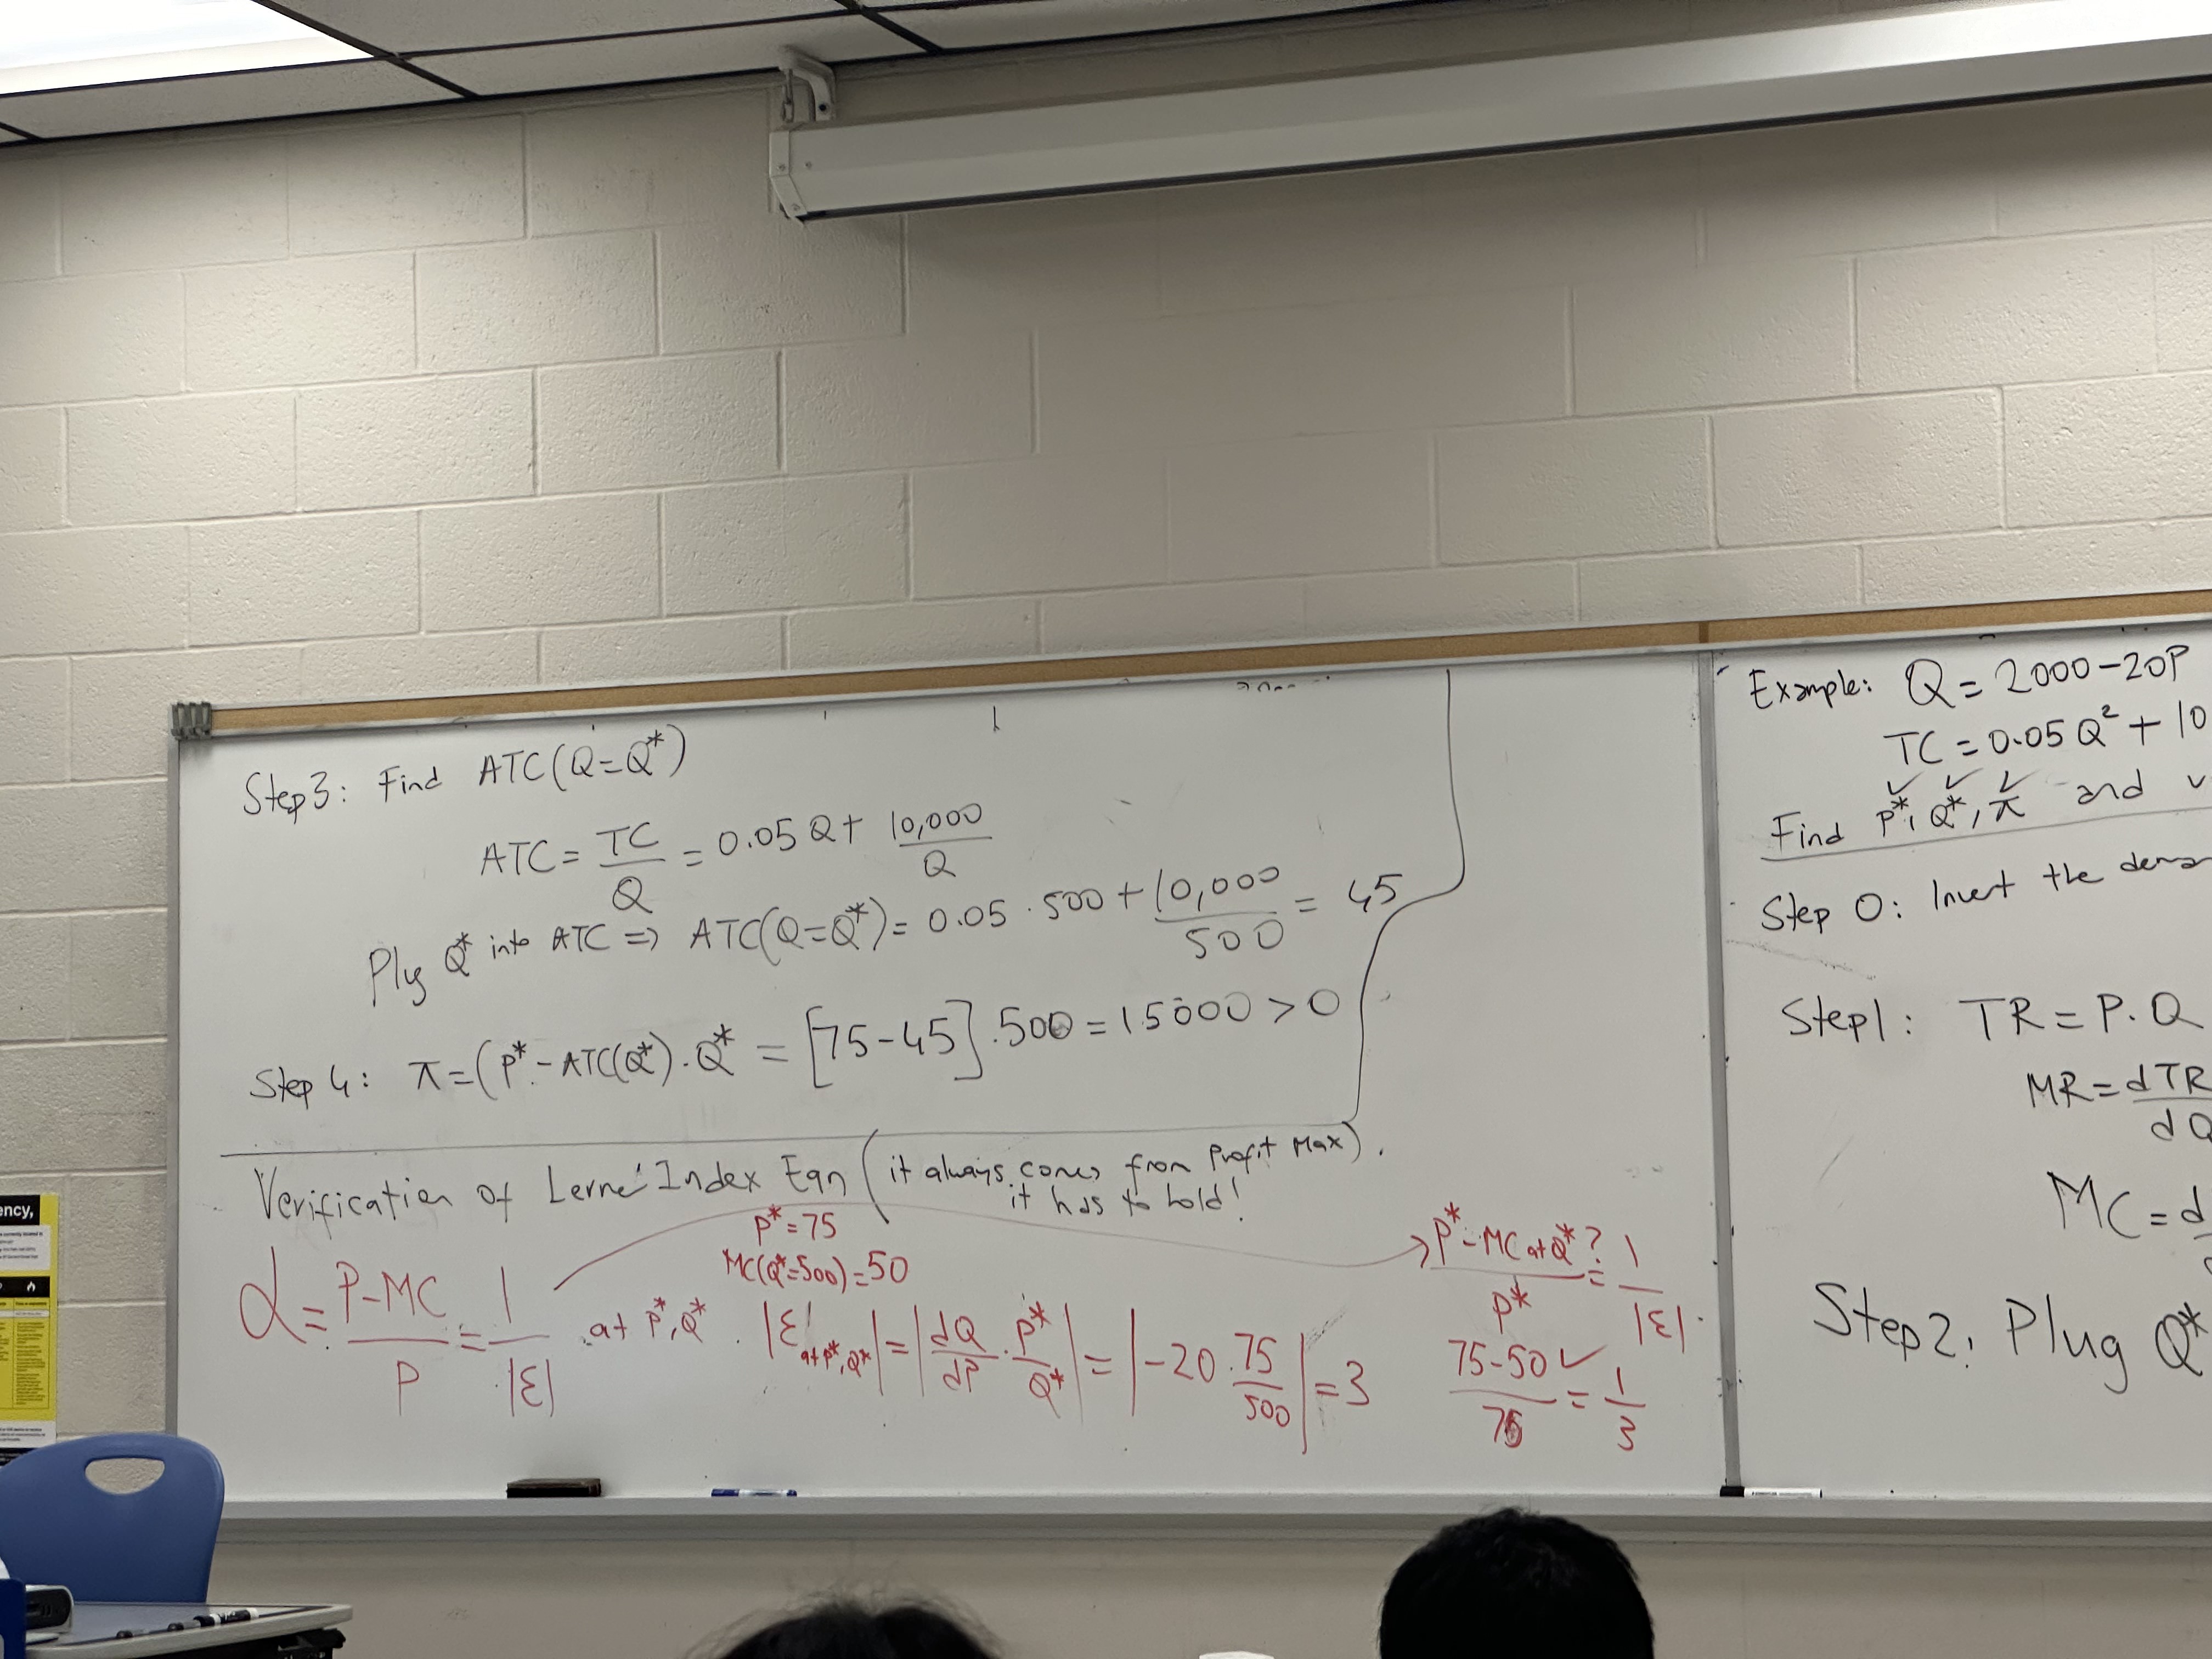 Step 3: Find ATC(Q=Q*)
ATC = TC/Q = 0.05 Q + 10,000/Q
Plug Q* into ATC => ATC(Q=Q*) = 0.05 . 500 + 10,000/500 = 45
Step 4: π = (P* - ATC(Q*) . Q* = [75-45] . 500 = 15000 > 0
Verification of Lerner Index Eqn (it always comes from Profit Max).
it has to hold!
P* = 75
MC(Q*=500) = 50
α = P-MC/P = 1/|ε| at P*, Q*. |ε at P*,Q*| = |dQ/dP . P*/Q*| = |-20 . 75/500| = 3
P* - MC at Q*/P* ?= 1/|ε|.
75-50/75 = ✓ 1/3
Example: Q = 2000-20P
TC = 0.05 Q² + 10
✓ ✓ ✓
Find P*, Q*, π and
Step 0: Invert the
Step 1: TR = P.Q
MR = dTR/dQ
MC = d
Step 2: Plug Q*